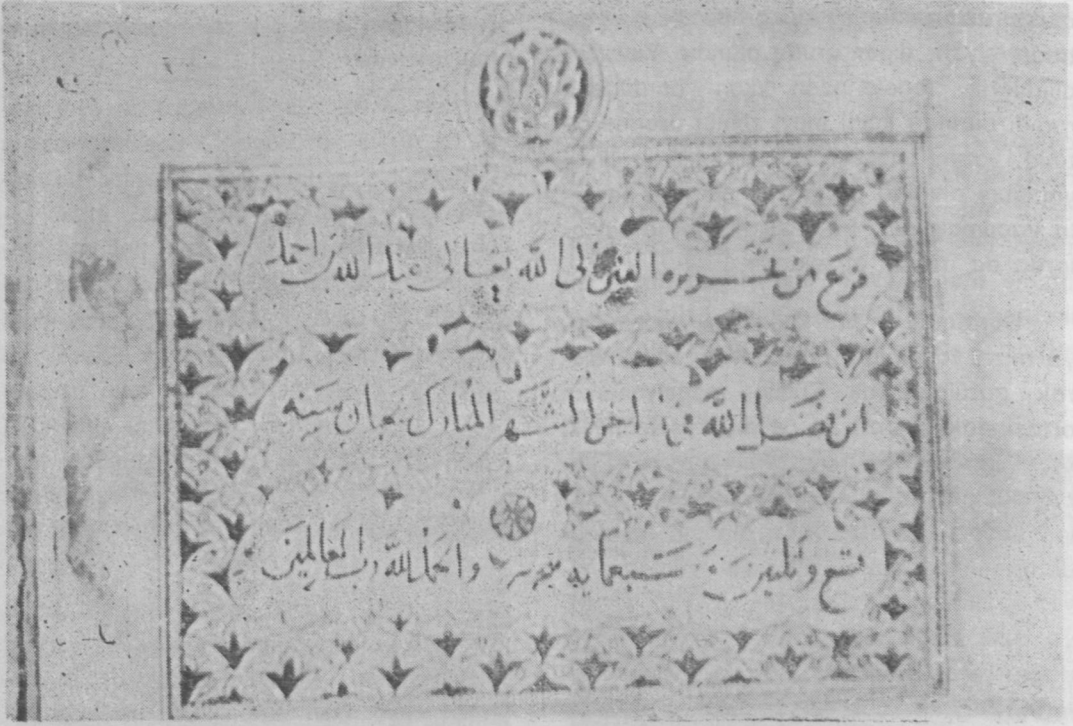 فرغ من تحريره الفقير الى الله تعالى عبد الله بن احمد
ابن فضل الله في اخر الشهر المبارك سنه
تسع وثلثين و سبعمايه هجريه والحمد لله رب العالمين